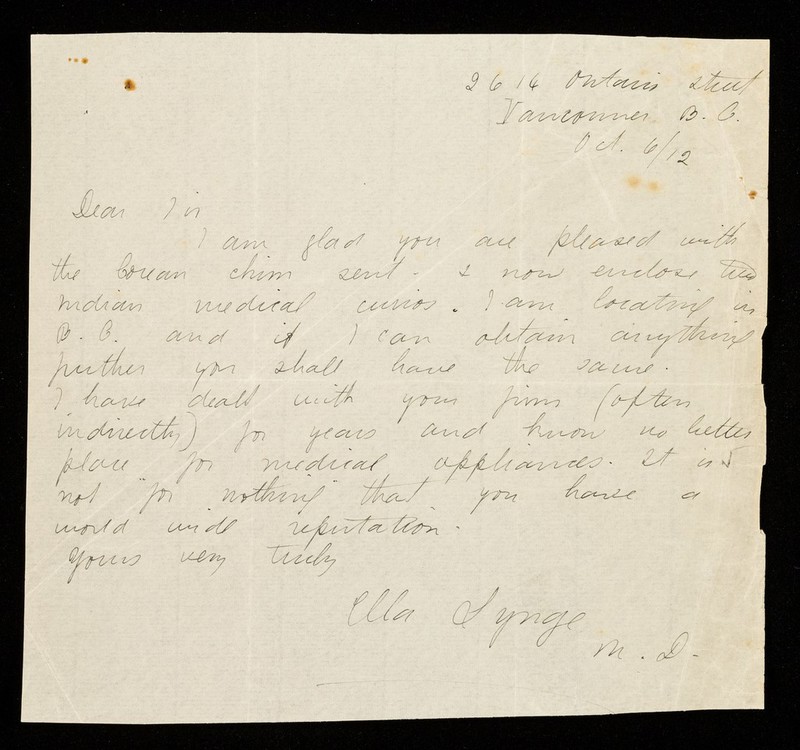 2614 Ontario Street
Vancouver B. C.
Oct. 6/12
Dear Sir
I am glad you are pleased with
the Corean chim sent - & now enclose two
Indian medical curios. I am locating in
B. C. and if I can obtain anything
further you shall have the same.
I have dealt with your firm (often
indirectly) for years and know no better
place for medical appliances. It is
not "for nothing" that you have a
world wide reputation.
Yours very truly
Ella Synge
M. D.